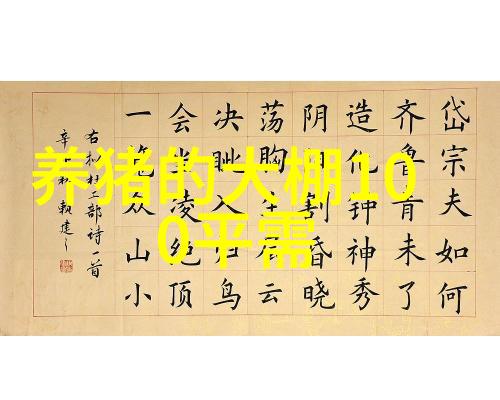 养猪的大棚10
0平需
岱宗夫如何
齐鲁青未了
造化钟神秀
阴阳割昏晓
荡胸生层云
决眦入归鸟
会当凌绝顶
一览众山小
右杜工部诗一首
辛秋赖建